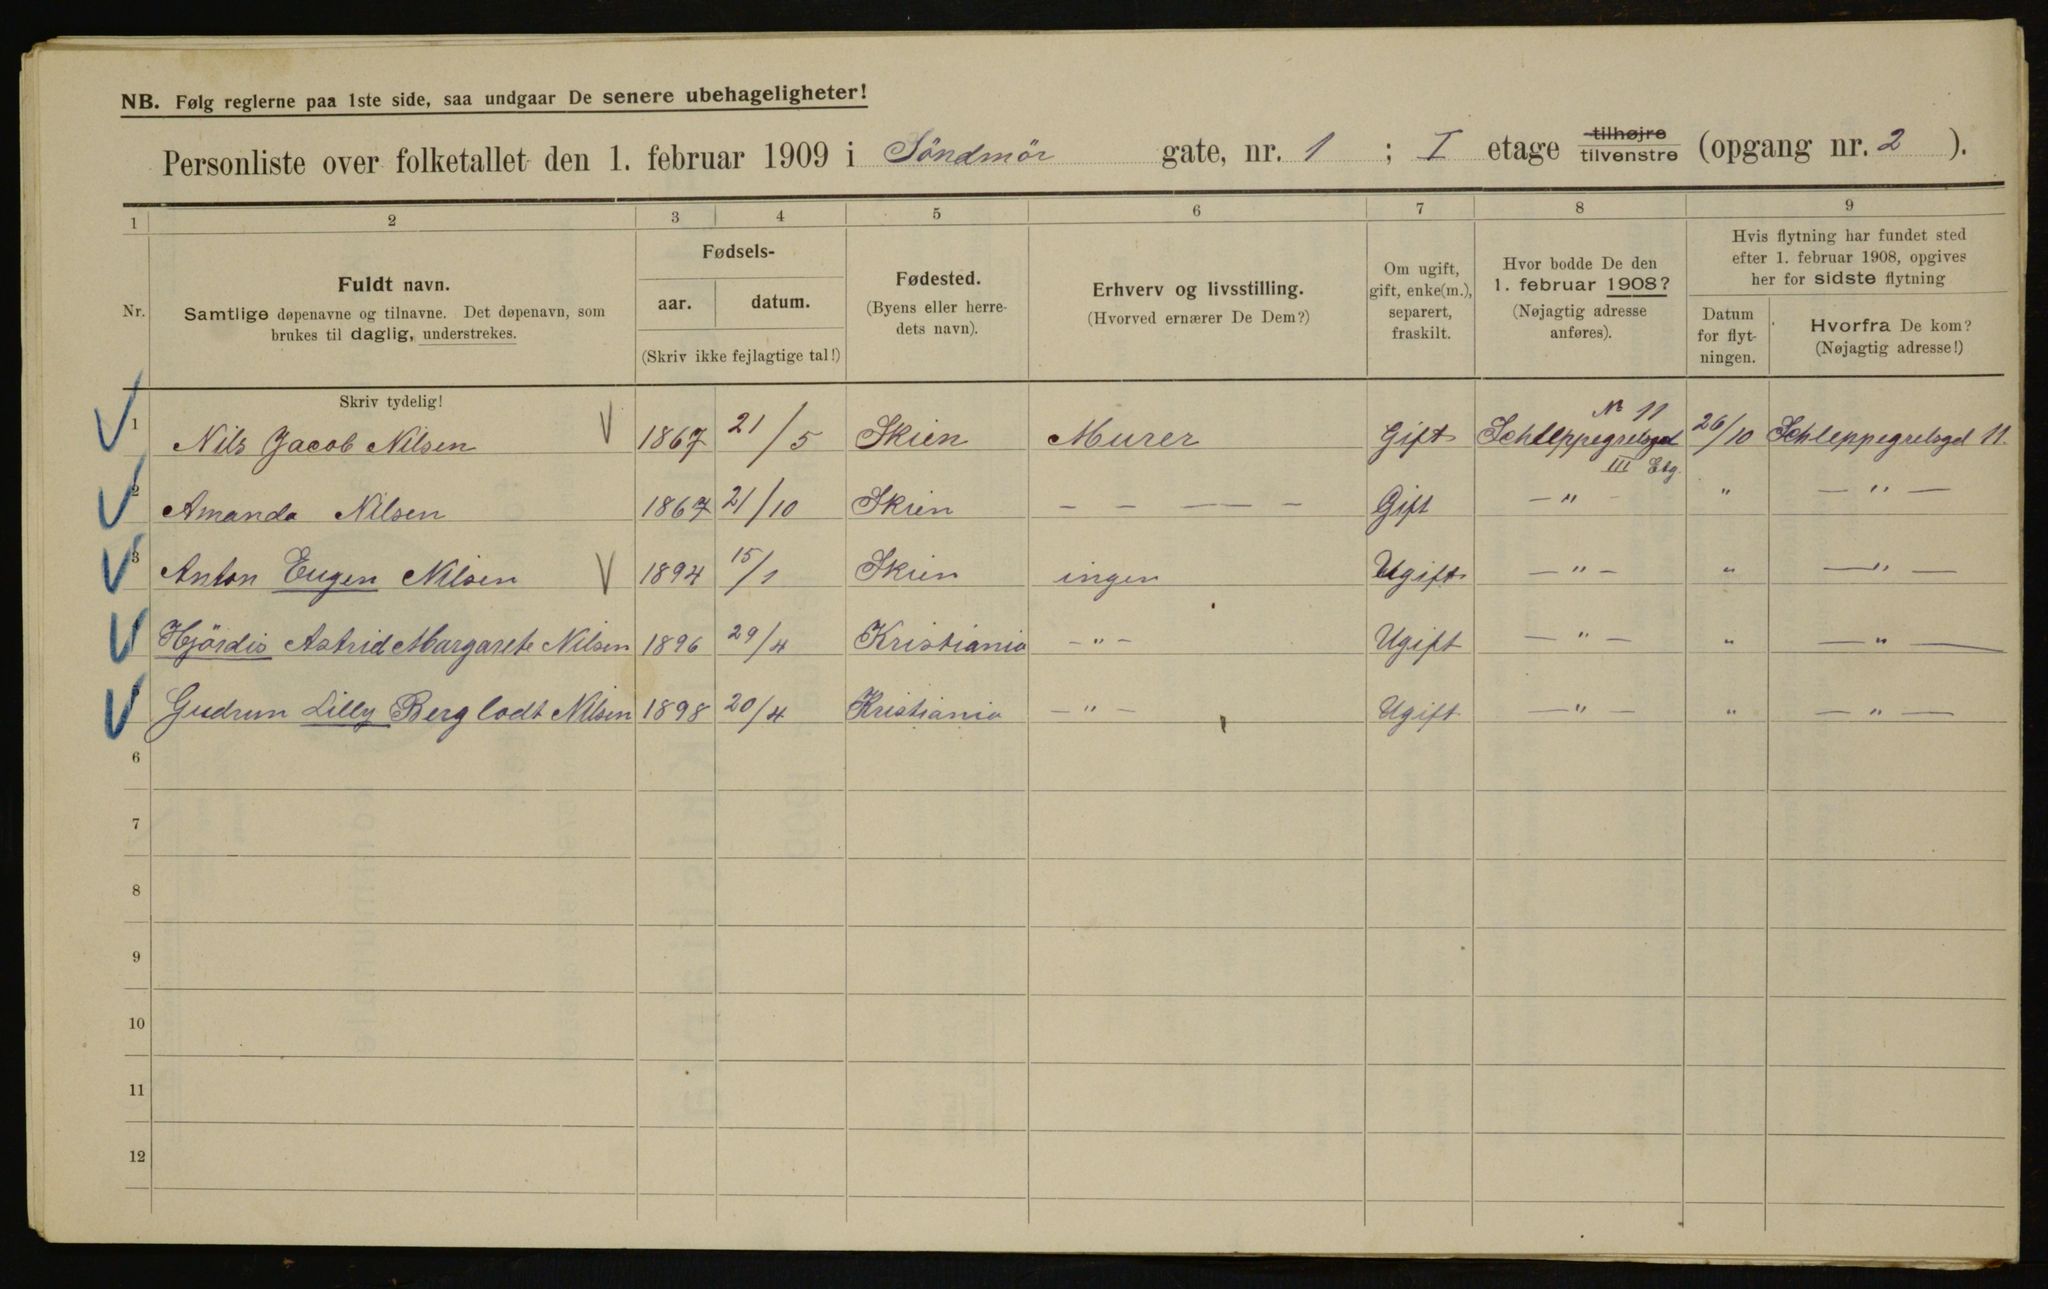 NB. Følg reglerne paa 1ste side, saa undgaar De senere ubehageligheter!
Personliste over folketallet den 1. februar 1909 i Söndmör gate, nr. 1 ; I etage tilhøjre tilvenstre (opgang nr. 2 ).
1 2 3 4 5 6 7 8 9
Nr.
Fuldt navn.
Samtlige døpenavne og tilnavne. Det døpenavn, som
brukes til daglig, understrekes.
Fødsels-
aar. datum.
(Skriv ikke fejlagtige tal!)
Fødested.
(Byens eller herre-
dets navn).
Erhverv og livsstilling.
(Hvorved ernærer De Dem?)
Om ugift,
gift, enke(m.),
separert,
fraskilt.
Hvor bodde De den
1. februar 1908?
(Nøjagtig adresse
anføres).
Hvis flytning har fundet sted
efter 1. februar 1908, opgives
her for sidste flytning
Datum
for flyt-
ningen.
Hvorfra De kom?
(Nøjagtig adresse!)
Skriv tydelig!
No 11
1 Nils Jacob Nilsen 1867 21/5 Skien Murer Gift Schleppegrelsgd 26/10 Schleppegrelsgd 11.
III Etg.
2 Amanda Nilsen 1867 21/10 Skien — — — — — Gift — " — " — " —
3 Anton Eugen Nilsen 1894 15/1 Skien ingen Ugift — " — " — " —
Hjördis Astrid Margarete Nilsen 1896 29/4 Kristiania — " — Ugift — " — " — " —
Gudrun Lilly Berglodt Nilsen 1898 20/4 Kristiania — " — Ugift — " — " — " —
6
7
8
9
10
11
12